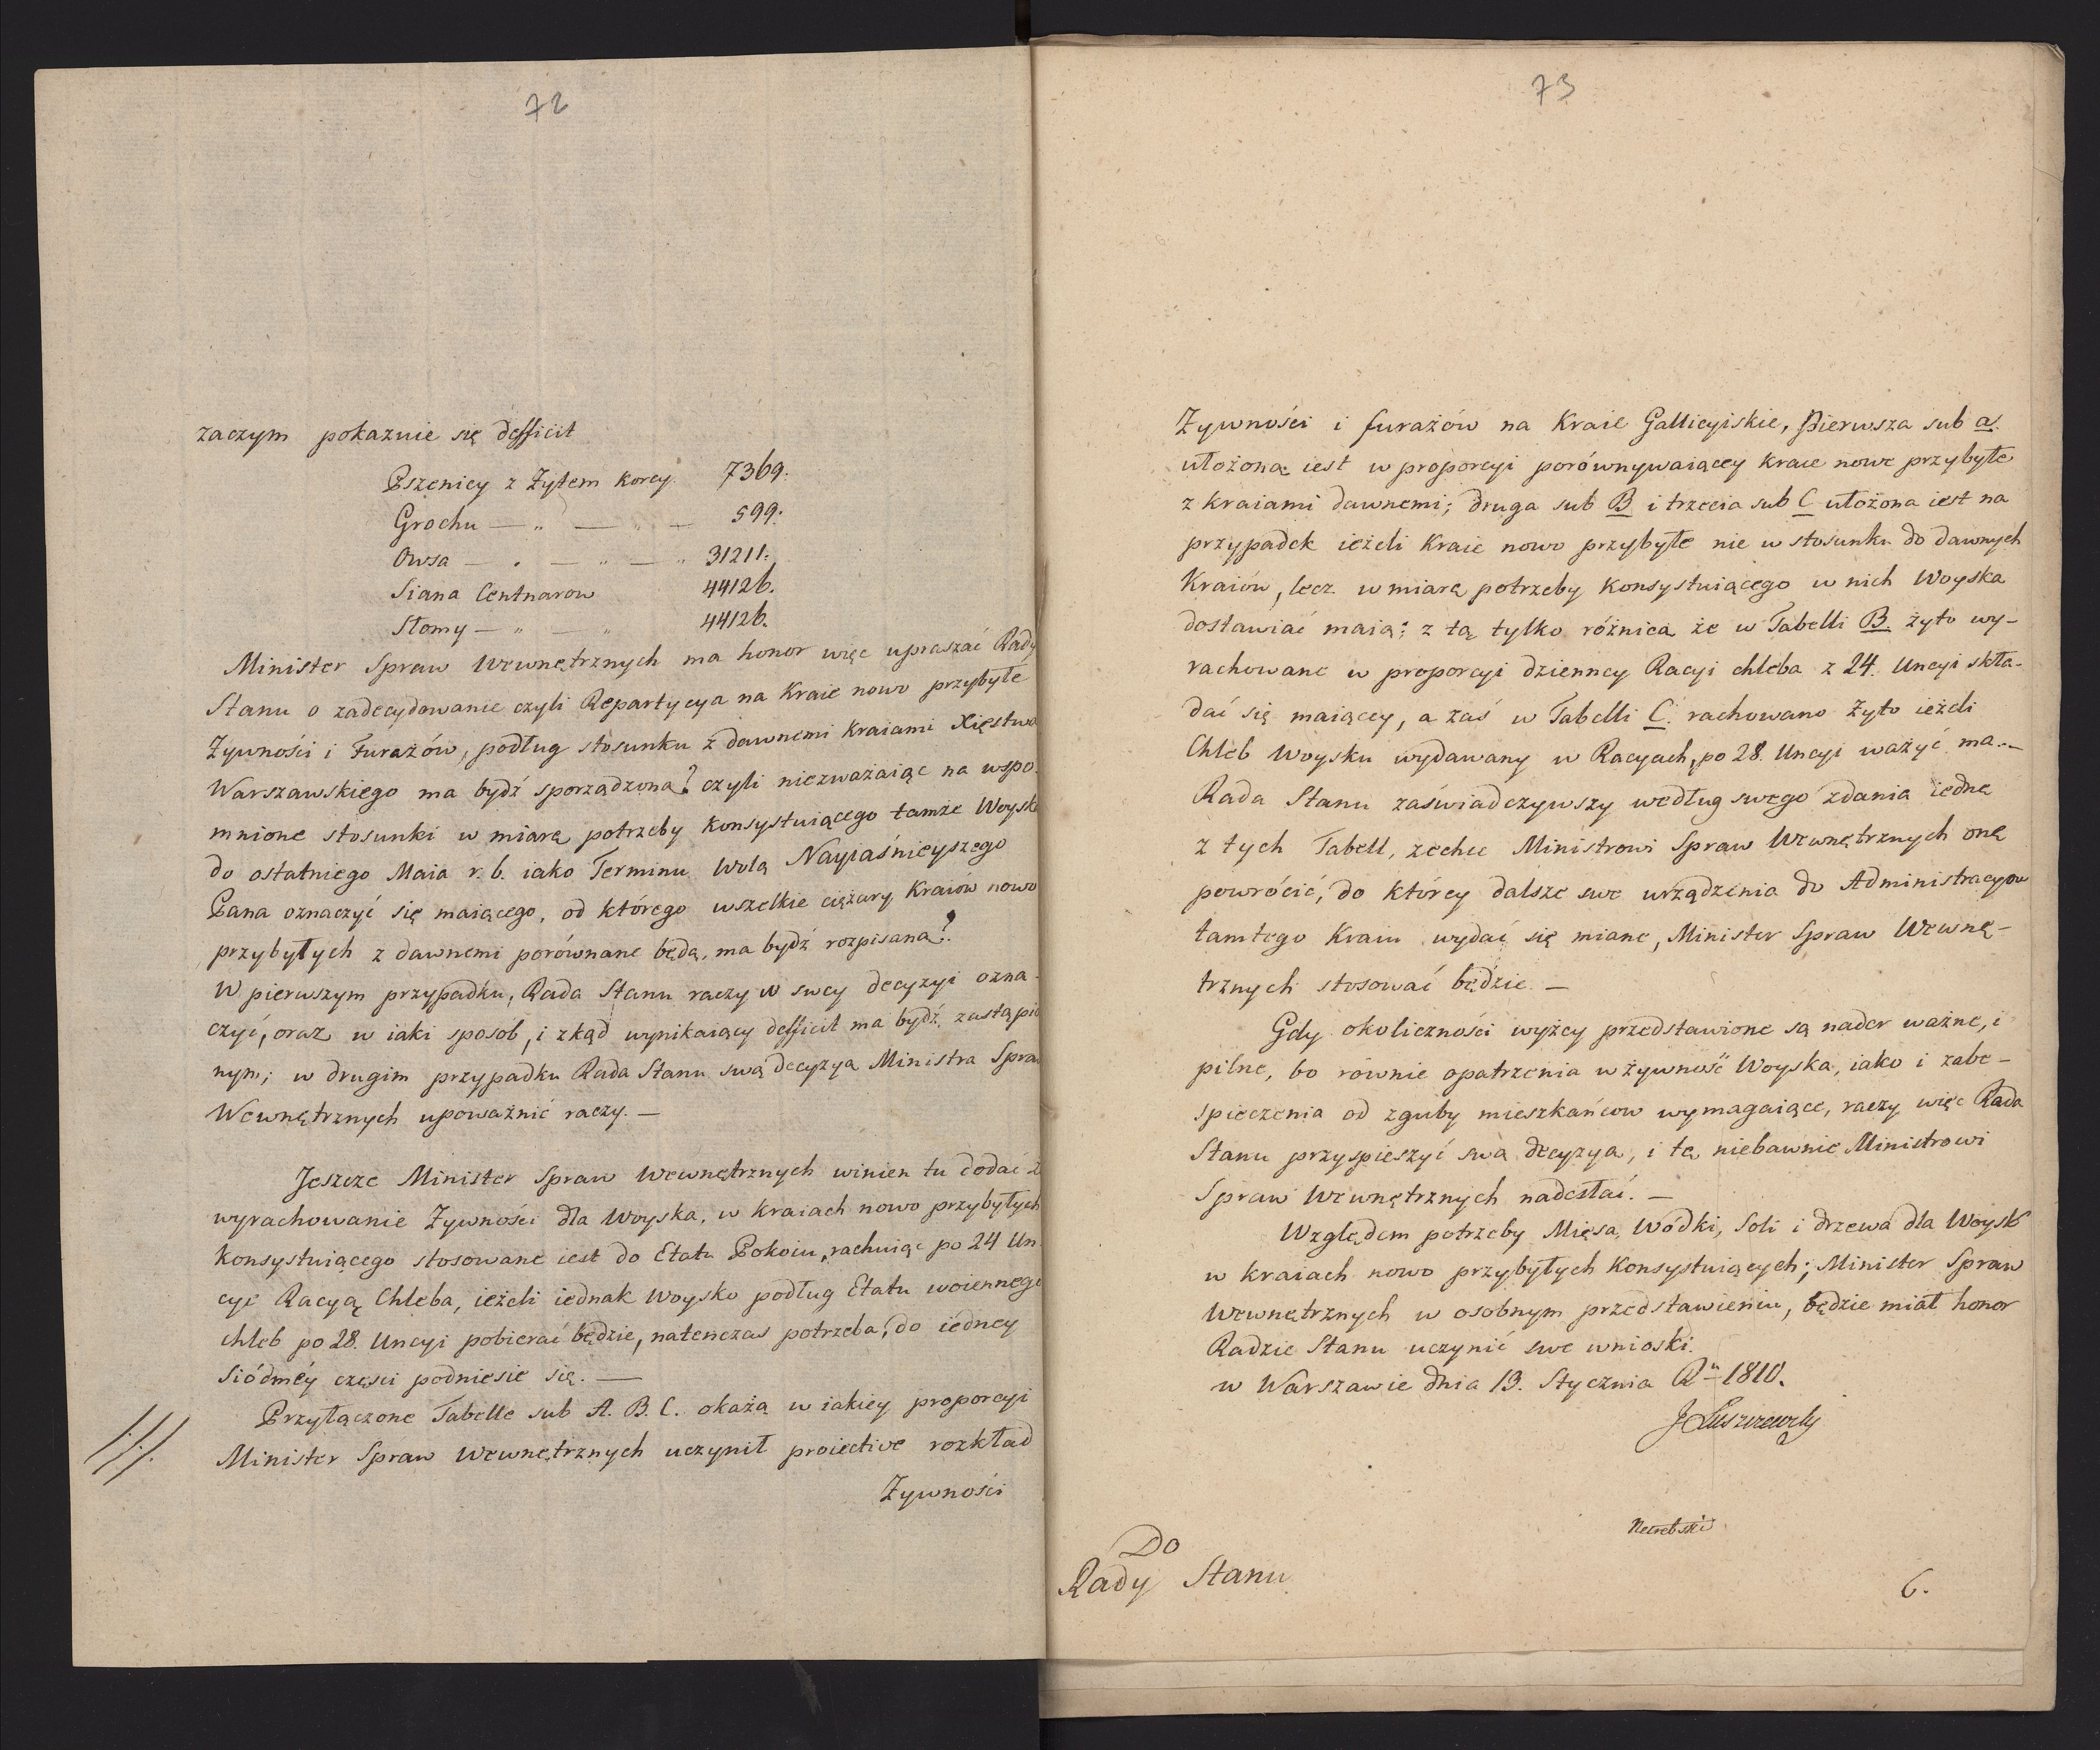 72
zaczym pokazuie się defficit
Pszenicy z Żytem korcy. 7369.
Grochu — „ — „ — 599.
Owsa — „ — „ — „ 31211.
Siana Centnarow 44126.
Słomy — „ — „ 44126.
Minister Spraw Wewnętrznych ma honor więc upraszać Rady
Stanu o zadecydowanie czyli Repartycya na Kraie nowo przybyłe
Żywności i Furażów, podług stosunku z dawnemi Kraiami Xięstwa
Warszawskiego ma bydź sporządzona? czyli niezważaiąc na wspo-
mnione stosunki w miarę potrzeby konsystuiącego tamże Woyska
do ostatniego Maia r. b. iako Terminu Wolą Nayiaśnieyszego
Pana oznaczyć się maiącego, od którego wszelkie ciężary Kraiów nowo
przybyłych z dawnemi porównane będą, ma bydź rozpisana?
W pierwszym przypadku, Rada Stanu raczy w swey decyzyi ozna-
czyć, oraz w iaki sposób, i zkąd wynikaiący defficit ma bydź zastąpio
nym; w drugim przypadku Rada Stanu swą decyzyą Ministra Spraw
Wewnętrznych upoważnić raczy. —
Jeszcze Minister Spraw Wewnętrznych winien tu dodać ż
wyrachowanie Żywności dla Woyska, w kraiach nowo przybyłych
konsystuiącego stosowane iest do Etatu Pokoiu, rachuiąc po 24 Un
cye Racyą Chleba, ieżeli iednak Woysko podług Etatu woiennego
chleb po 28. Uncyi pobierać będzie, natenczas potrzeba, do iedney
siódméy części podniesie się. —
Przyłączone Tabelle sub A. B. C. okażą w iakiey proporcyi
Minister Spraw Wewnętrznych uczynił proiective rozkład
Żywności
73
Żywności i furażów na Kraie Gallicyiskie, Pierwsza sub a.
ułożona iest w proporcyi porównywaiącey kraie nowe przybyłe
z kraiami dawnemi; druga sub B i trzecia sub C ułożona iest na
przypadek ieżeli Kraie nowo przybyłe nie w stosunku do dawnych
Kraiów, lecz w miarę potrzeby konsystuiącego w nich Woyska
dostawiać maią; z tą tylko różnicą że w Tabelli B. żyto wy-
rachowane w proporcyi dzienney Racyi chleba z 24. Uncyi skła-
dać się maiącey, a zaś w Tabelli C. rachowano Żyto ieżeli
Chleb Woysku wydawany w Racyach, po 28. Uncyi ważyć ma. —
Rada Stanu zaświadczywszy według swego zdania iedną
z tych Tabell, zechce Ministrowi Spraw Wewnętrznych onę
powrócić, do którey dalsze swe urządzenia do Administracyow
tamtego Kraiu wydać się miane, Minister Spraw Wewnę-
trznych stosować będzie. —
Gdy okoliczności wyżey przedstawione są nader ważne, i
pilne, bo równie opatrzenia w żywność Woyska, iako i zabe-
spieczenia od zguby mieszkańcow wymagaiące, raczy więc Rada
Stanu przyspieszyć swą decyzyą, i tę niebawnie Ministrowi
Spraw Wewnętrznych nadesłać. —
Względem potrzeby Mięsa, Wódki, Soli i drzewa dla Woysk
w kraiach nowo przybyłych Konsystuiących; Minister Spraw
Wewnętrznych w osobnym przedstawieniu, będzie miał honor
Radzie Stanu uczynić swe wnioski.
w Warszawie dnia 13. Stycznia Rᵘ 1810.
J Łuszczewsky
Do
Rady Stanu
6.